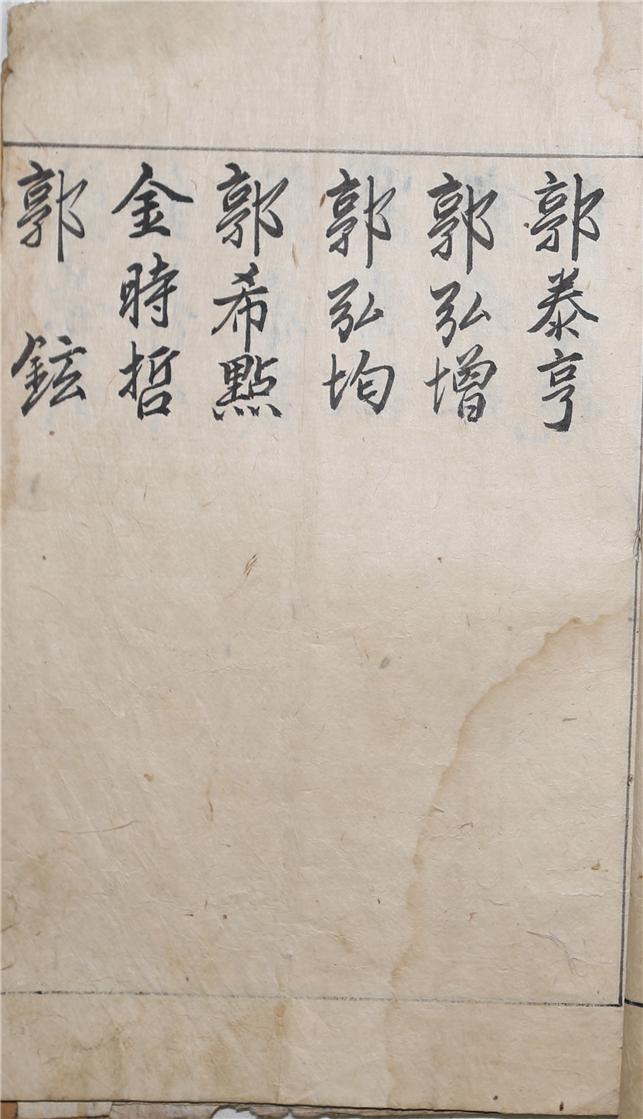 郭泰亨
郭弘增
郭弘均
郭希點
金時哲
郭鉉